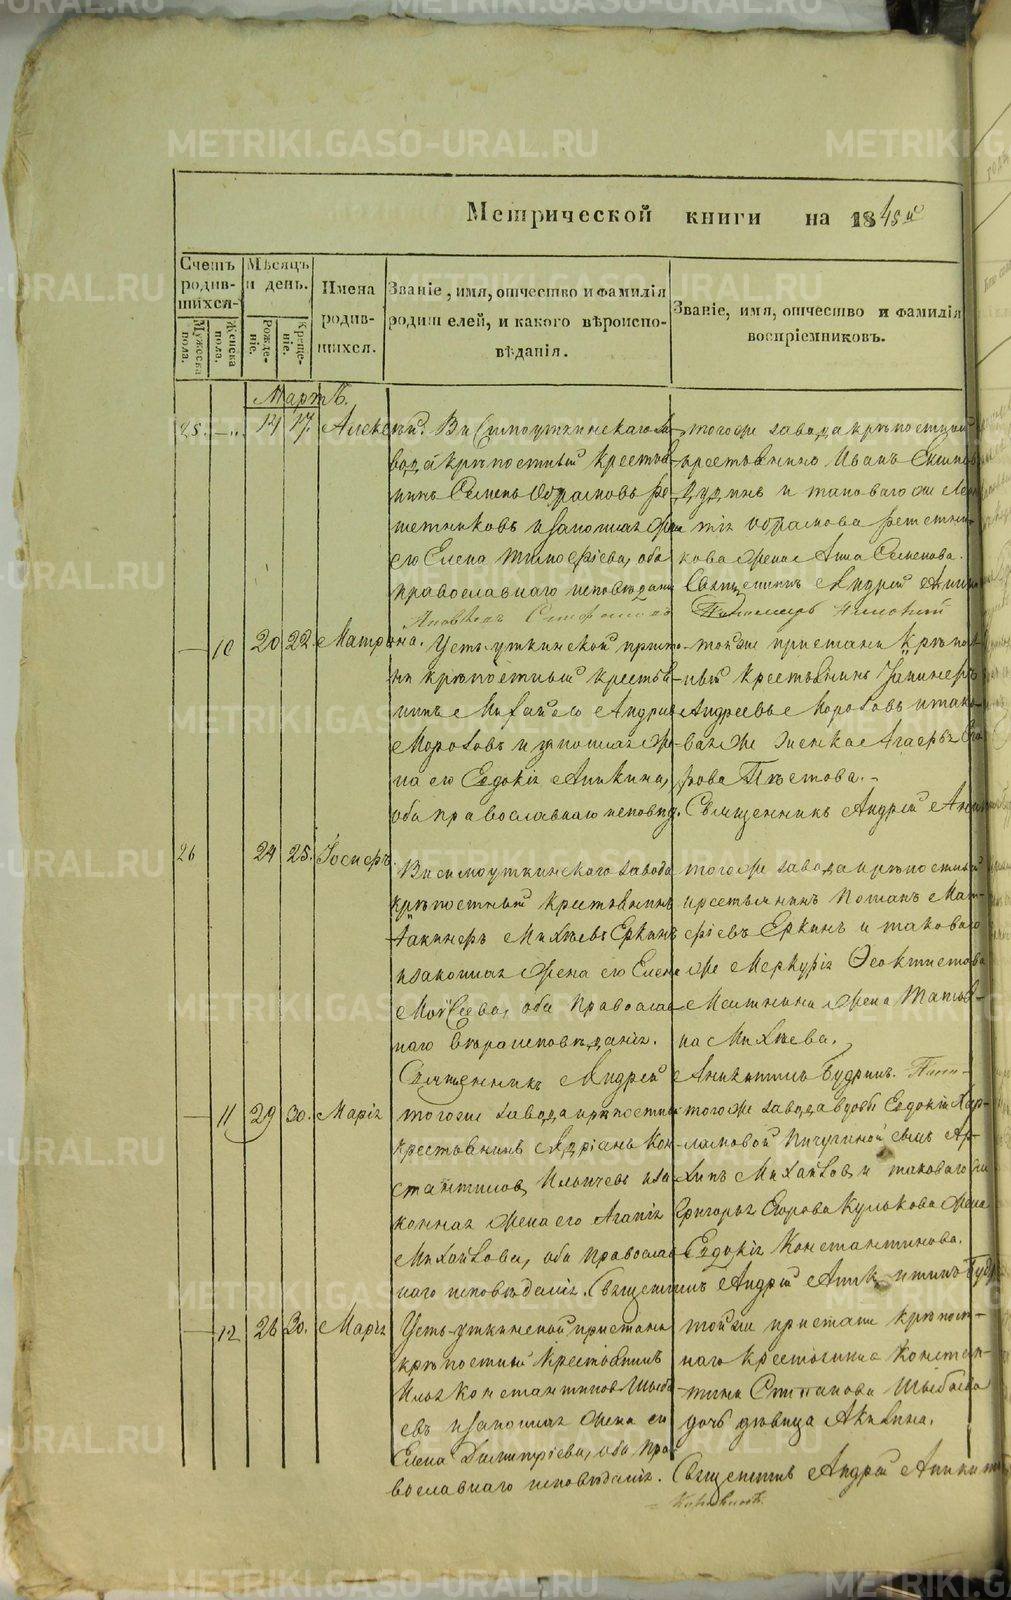 Метрической книги на 1845й
Счетъ родив-шихся.
Мужеска пола.
Женска пола.
Мѣсяцъ и день.
Рожде-ніе.
Креще-ніе.
Имена родив-шихся.
Званіе, имя, отчество и фамилія родителей, и какого вѣроиспо-вѣданія.
Званіе, имя, отчество и фамилія воспріемниковъ.
Мартъ.
25. 14 17. Алексѣй.
Висимоуткинскаго за-
вода крѣпостный крестья-
нинъ Семенъ Абрамовъ Ре-
шетниковъ и законная жена
его Елена Тимофѣева, оба
православнаго исповѣданія
тогоже завода крѣпостный
крестьянинъ Иванъ
и таковаго же
Абрамова Решетни-
кова жена Анна Семенова.
Священникъ Андрей Аники
10 20 22 Матрона.
Усть-уткинской приста-
ни крѣпостный крестья-
нинъ Михайло Андреевъ
Морозовъ и законная же-
на его Евдокія Аникина,
оба православнаго исповѣд.
тойже пристани крѣпост-
ный крестьянинъ
Андреевъ Морозовъ и тако-
ваяже женка Агафья
рова
Священникъ Андрей
26 24 25. Іосифъ.
Висимоуткинского завода
крѣпостный крестьянинъ
Іакинфъ Михѣевъ Еркинъ
и законная жена его Елена
Мойсеева, оба православ-
наго вѣроисповѣданія.
тогоже завода крѣпостный
крестьянинъ Потапъ Мат-
фѣевъ Еркинъ и таковаго
же Меркурія Феоктистова
жена Татья-
на Михѣева.
Священникъ Андрей Аникитинъ Будринъ.
11 29 30. Марія
тогоже завода крѣпостный
крестьянинъ Адріанъ Кон-
стантиновъ Ильичевъ и за-
конная жена его Агапія
Михайлова, оба православ-
наго исповѣданія.
тогоже завода вдовы Евдокіи Хар-
лампіевой Пичугиной сынъ Ар-
хипъ Михайловъ и таковаго же
Григорья Егорова Кулькова жена
Евдокія Константинова.
Священникъ Андрей Аникитинъ Буд
12 26 30. Марья
Усть-уткинской пристани
крѣпостный крестьянинъ
Илья Константиновъ Шыба-
евъ и законная жена его
Елена Димитріева, оба пра-
вославнаго исповѣданія.
тойже пристани крѣпост-
наго крестьянина Констан-
тина Степанова Шыбаева
дочь дѣвица Акилина.
Священникъ Андрей Аникити
METRIKI.GASO-URAL.RU